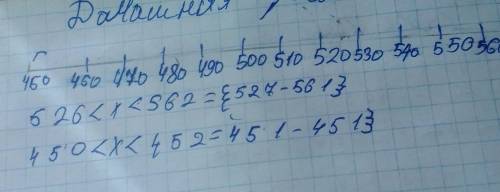 Домашняя
450 460 470 480 490 500 510 520 530 540 550 560
526<x<562={527-561}
450<x<452=451-451}